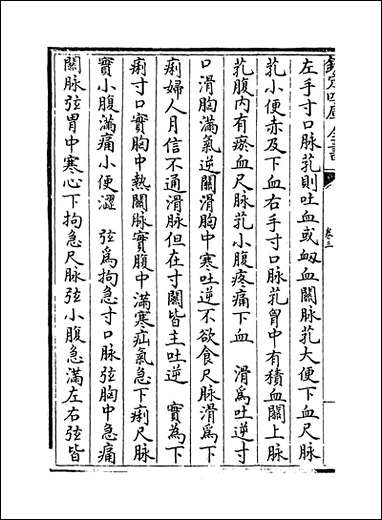 欽定四庫全書
卷三
左手寸口脉芤則吐血或衂血關脉芤大便下血尺脉
芤小便赤及下血右手寸口脉芤胷中有積血關上脉
芤腹内有瘀血尺脉芤小腹疼痛下血 滑為吐逆寸
口滑胸滿氣逆關滑胸中寒吐逆不欲食尺脉滑爲下
痢婦人月信不通滑脉但在寸關皆主吐逆 實為下
痢寸口實胸中熱關脉實腹中滿寒疝氣急下痢尺脉
實小腹滿痛小便澀 弦爲拘急寸口脉弦胸中急痛
關脉弦胃中寒心下拘急尺脉弦小腹急滿左右弦皆